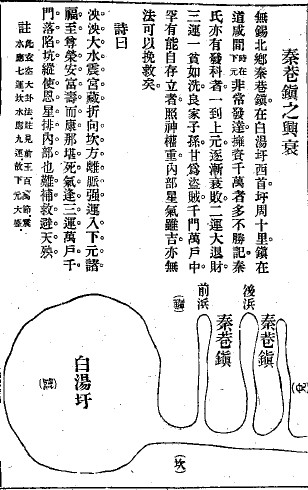 秦巷鎮之興衰
無錫北鄉秦巷鎮在白湯圩西首圩周十里鎮在
道咸間時在下元非常發達擁資千萬者多不勝記秦
氏亦有發科者一到上元逐漸衰敗二運大退財
三運一貧如洗良家子孫甘爲盜賊千門萬戶中
罕有能自存立者。照神權重內部星氣雖吉亦無
法可以挽救矣。
詩曰
泱泱大水震宮藏。折向坎方離脈强。運入下元諸
福至。尊榮安富壽而康。那堪死氣逢三運。萬戶千
門落陷坑。縱使恩星排內部。也難補救避天殃。
註
水應七運坎水應九運故下元大發
後浜
秦巷鎮
秦巷鎮
前浜
白湯圩
(坎)